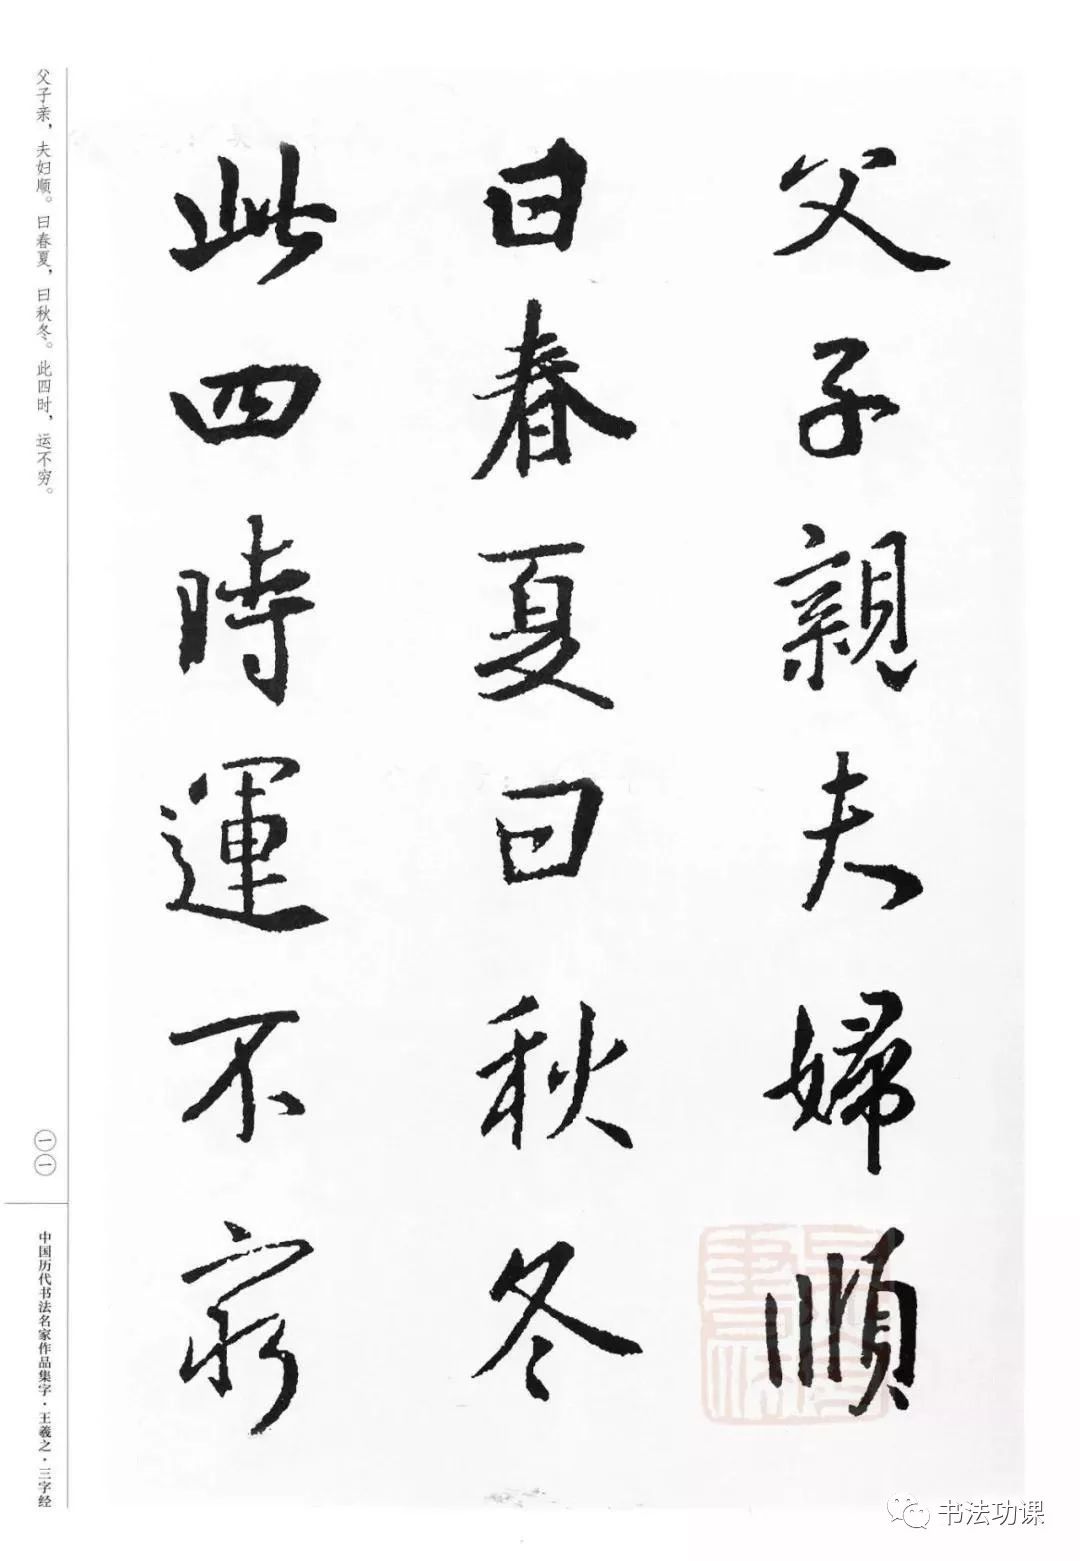 父子親夫婦順
曰春夏曰秋冬
此四時運不窮
父子亲，夫妇顺。曰春夏，曰秋冬。此四时，运不穷。
一一
中国历代书法名家作品集字·王羲之·三字经
书法功课